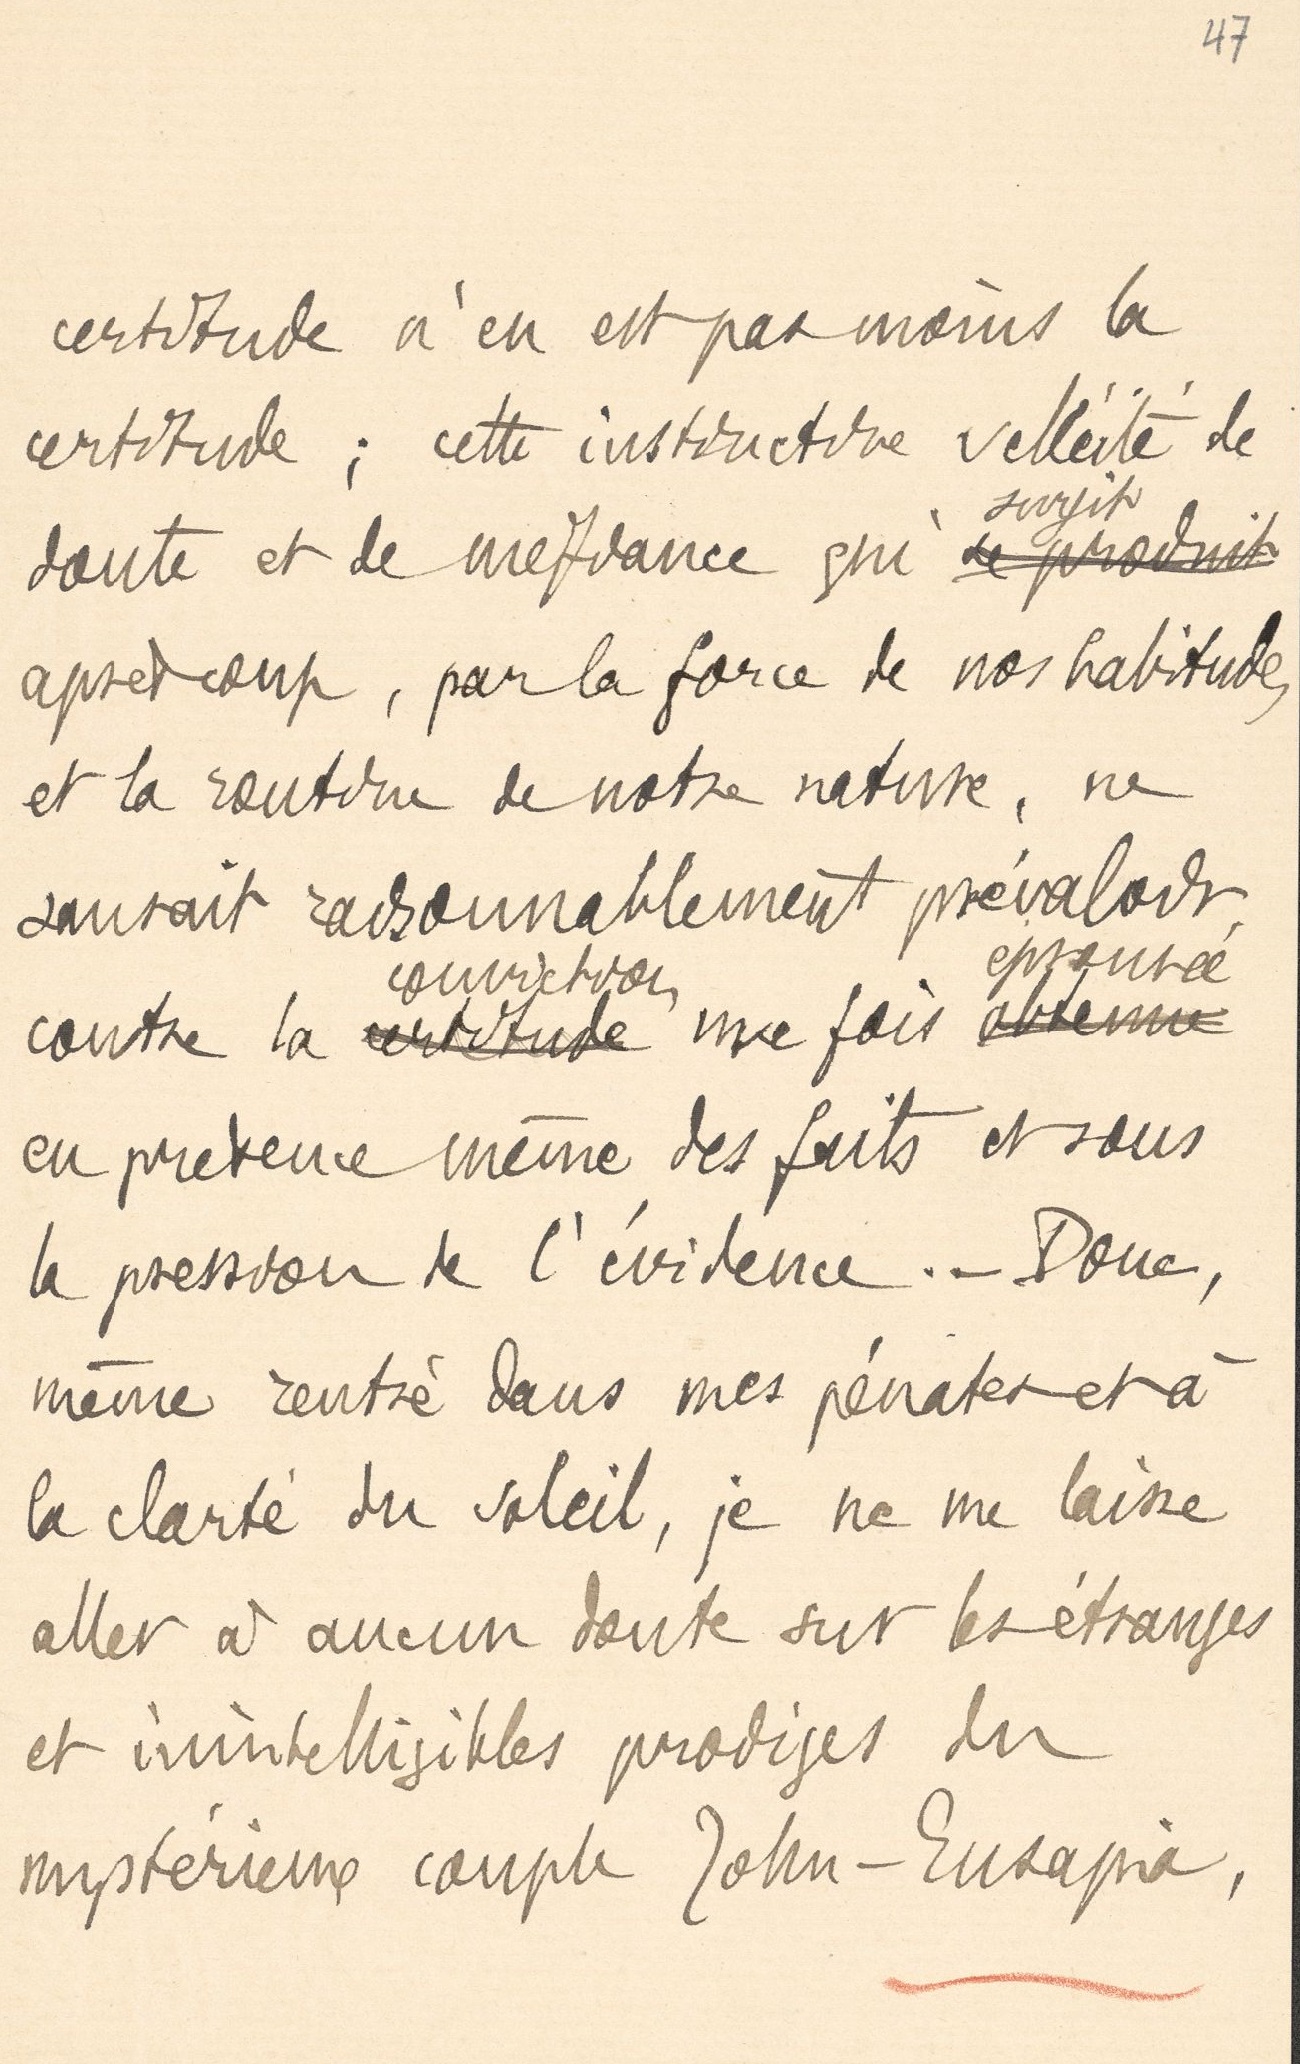 47
certitude n'en est pas moins la
certitude ; cette instinctive velléité de
surgit
doute et de méfiance qui se produit
après coup, par la force de nos habitudes
et la routine de notre nature, ne
saurait raisonnablement prévaloir
conviction éprouvée
contre la certitude une fois obtenue
en présence même des faits et sous
la pression de l'évidence. – Donc,
même rentré dans mes pénates et à
la clarté du soleil, je ne me laisse
aller à aucun doute sur les étranges
et inintelligibles prodiges du
mystérieux couple John-Eusapia,